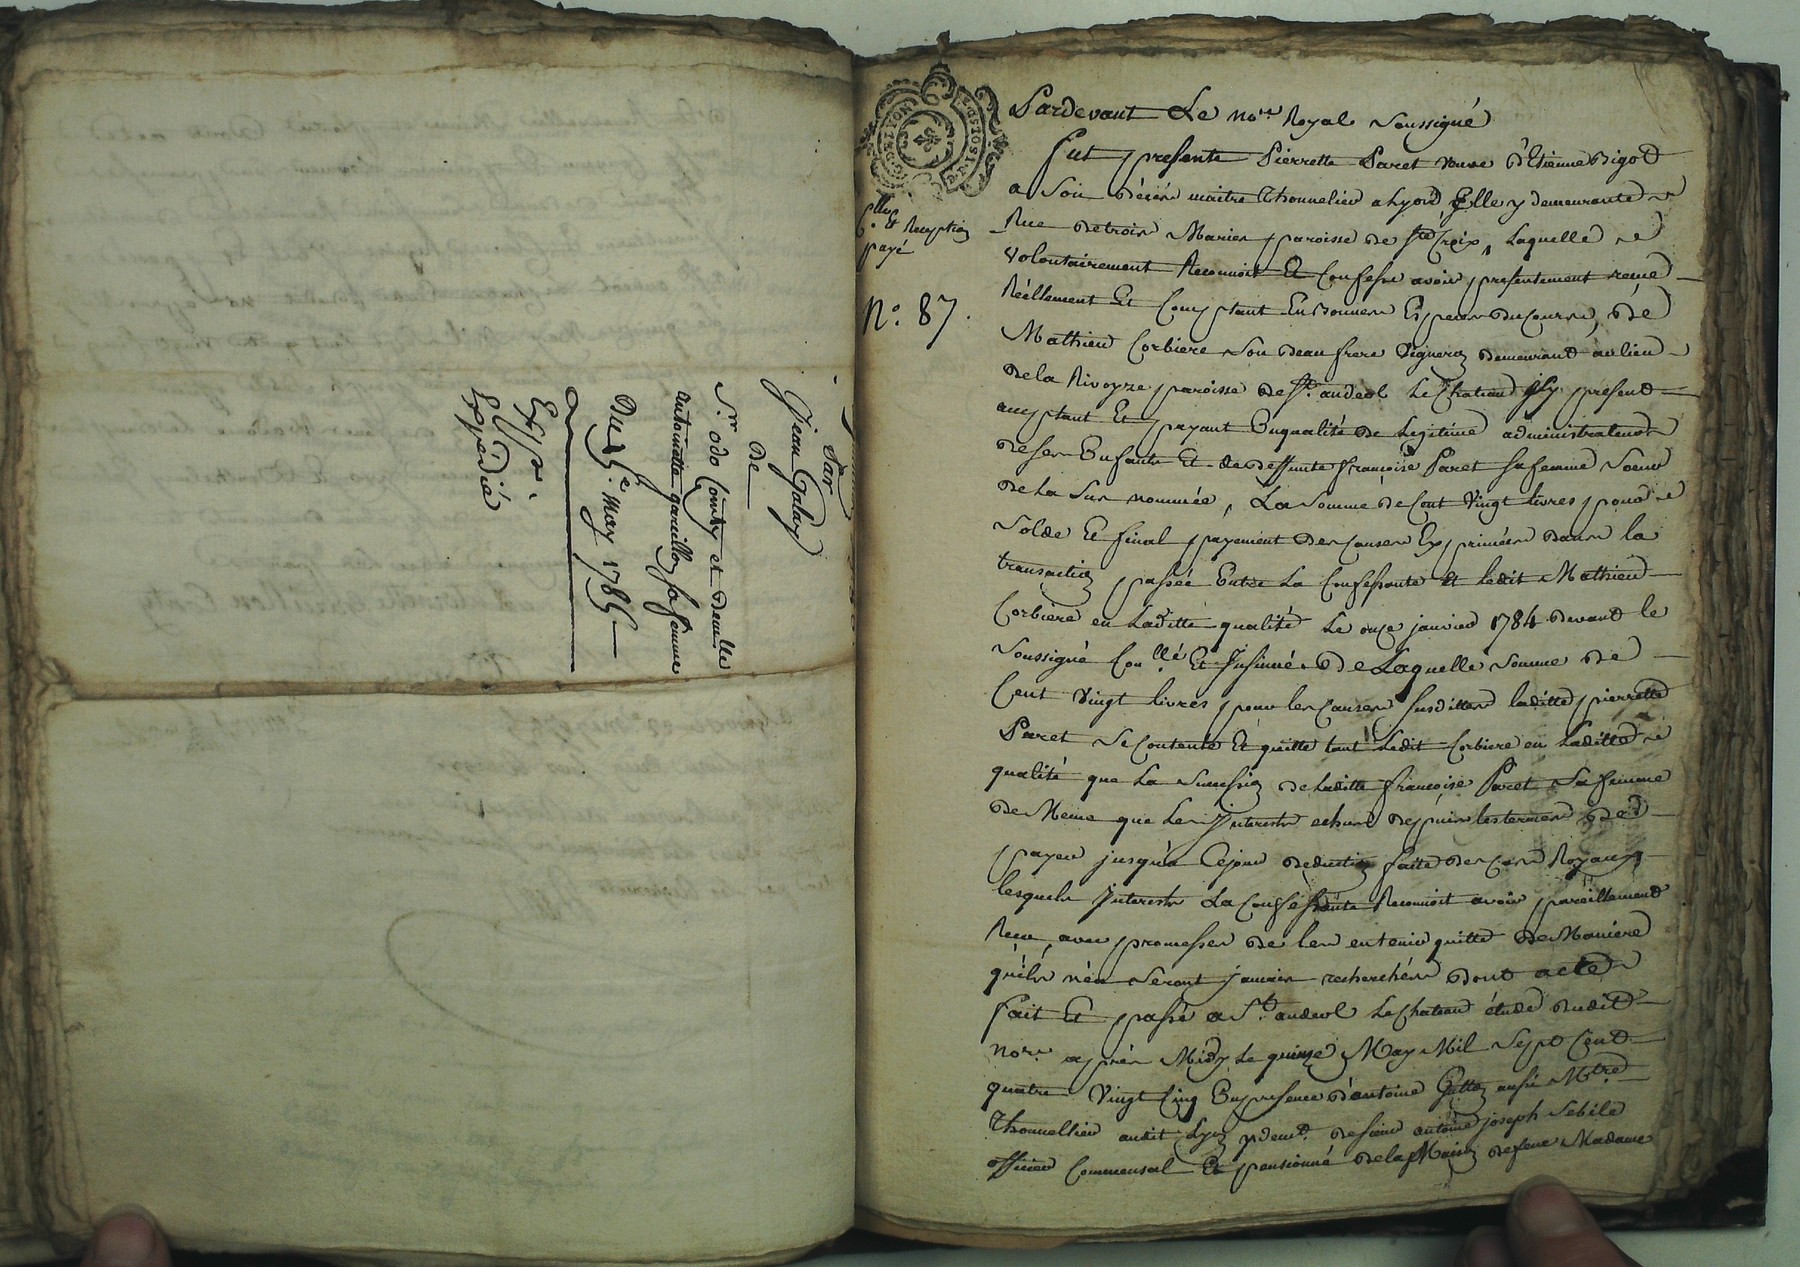 Par
Jean Galay
De
Sr. odo Conty et demlle
antoinette gareillon sa femme
Du 5e. may 1785
Exp.
Expédié
GEN. LYON
DEUX SOLS P. F.
Clle. Et Reception
payé
N°. 87.
Pardevant Le Nore. Royal Soussigné
fut presente Pierrette Paret veuve d'Etienne Bigot
a Son décés maitre Thonnelier a Lyon, Elle y demeurante
Rue de trois Maries paroisse de Ste Croix, Laquelle
volontairement Reconnoit Et Confesse avoir presentement reçue
Réellement Et Comptant En Bonnes Especes du Cours, de
Mathieu Corbiere Son Beau frere Vigneron demeurant au lieu
de la Rivoyre paroisse de St. andeol Le Chateau Icy present
acceptant Et payant En qualité de Legitime administrateur
de ses Enfants Et de deffunte françoise Paret sa femme Soeur
de La Sus nommée, La Somme de Cent Vingt Livres pour
Solde Et final payement des Causes Exprimées dans la
transaction passée Entre La Confessante et Ledit Mathieu
Corbiere en Laditte qualité Le onze janvier 1784 devant le
Soussigné Conllé. Et Insinué. De Laquelle Somme de
Cent Vingt Livres pour les Causes susdittes laditte pierrette
Paret Se Contente Et quitte tant Ledit Corbiere en Laditte
qualité que La Succession de Laditte françoise Paret Sa femme
de Meme que Les Interests echus depuis les termes de
payer jusqu'a Ce jour deduction faite des Cens Royaux
lesquels Interests La Confessante Reconnoit avoir pareillement
Reçu, avec promesses de les en tenir quitte de Maniere
qu'ils n'en Seront jamais recherchés dont acte
fait Et passé a St. andeol Le Chateau étude dudit
Nore. après Midy Le quinze May Mil Sept Cent
quatre Vingt Cinq En presence d'antoine aussi Mtre
Thonnellier audit Lyon y demt. de Sieur antoine joseph Sebile
officier Commensal Et pensionné de la Maison de feue Madame